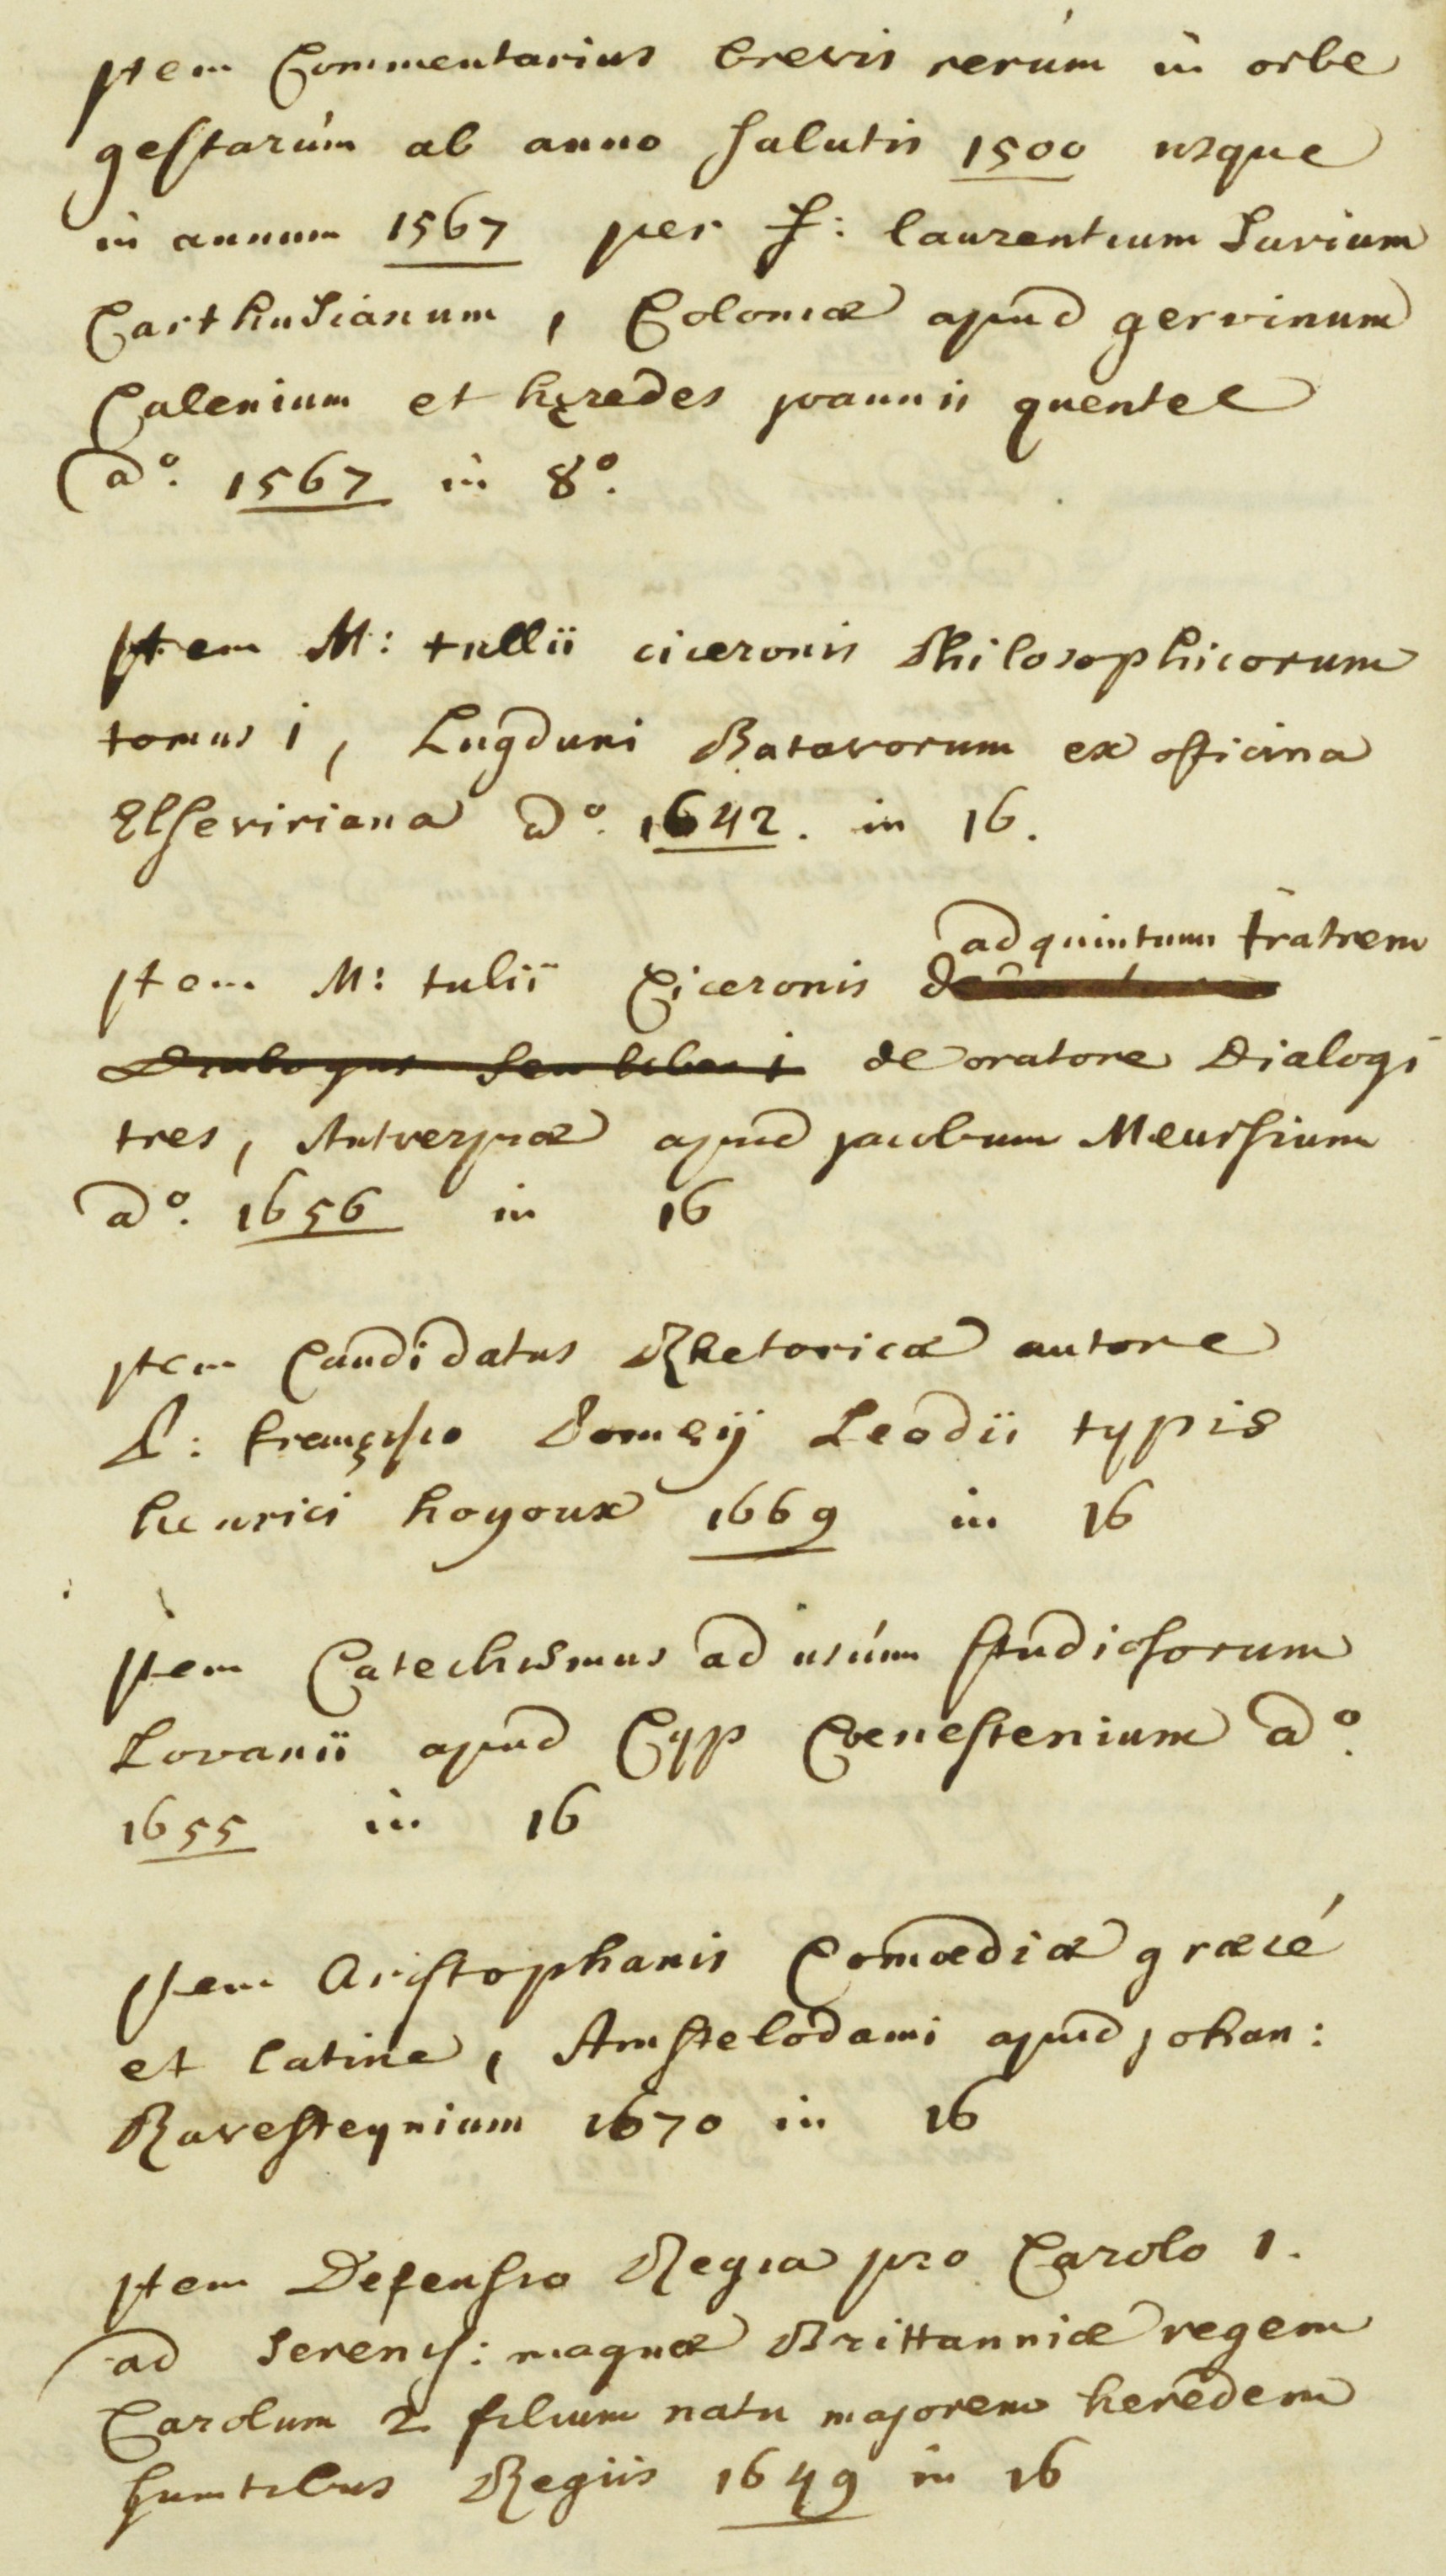 Item Commentarius brevis rerúm in orbe
gestarúm ab anno salutis 1500 usque
in annum 1567 per F: laurentium Surium
Carthusianum, Coloniæ apud gervinum
Calenium et hęredes joannis quentel
aº. 1567 in 8º.
Item M: tullii ciceronis Philosophicorum
tomus i, Lugduni Batavorum ex officina
Elseviriana aº. 1642. in 16.
ad quintum fratrem
Item M: tulii Ciceronis
Dialogus seu liber i de oratore Dialogi
tres, Antverpiæ apud jacobum Meursium
aº. 1656 in 16
Item Candidatus Rhetoricæ autore
P: Domęij Leodii typis
henrici hoyoux 1669 in 16
Item Catechismus ad usúm studiosorum
Lovanii apud Cyp Coenestenium aº.
1655 in 16
Item Aristophanis Comœdiæ græcé
et latine, Amstelodami apud johan:
Ravesteynium 1670 in 16
Item Defensio Regia pro Carolo 1.
ad Sereniss: magnæ Brittanniæ regem
Carolum 2 filium natu majorem heredem
sumtibus Regiis 1649 in 16